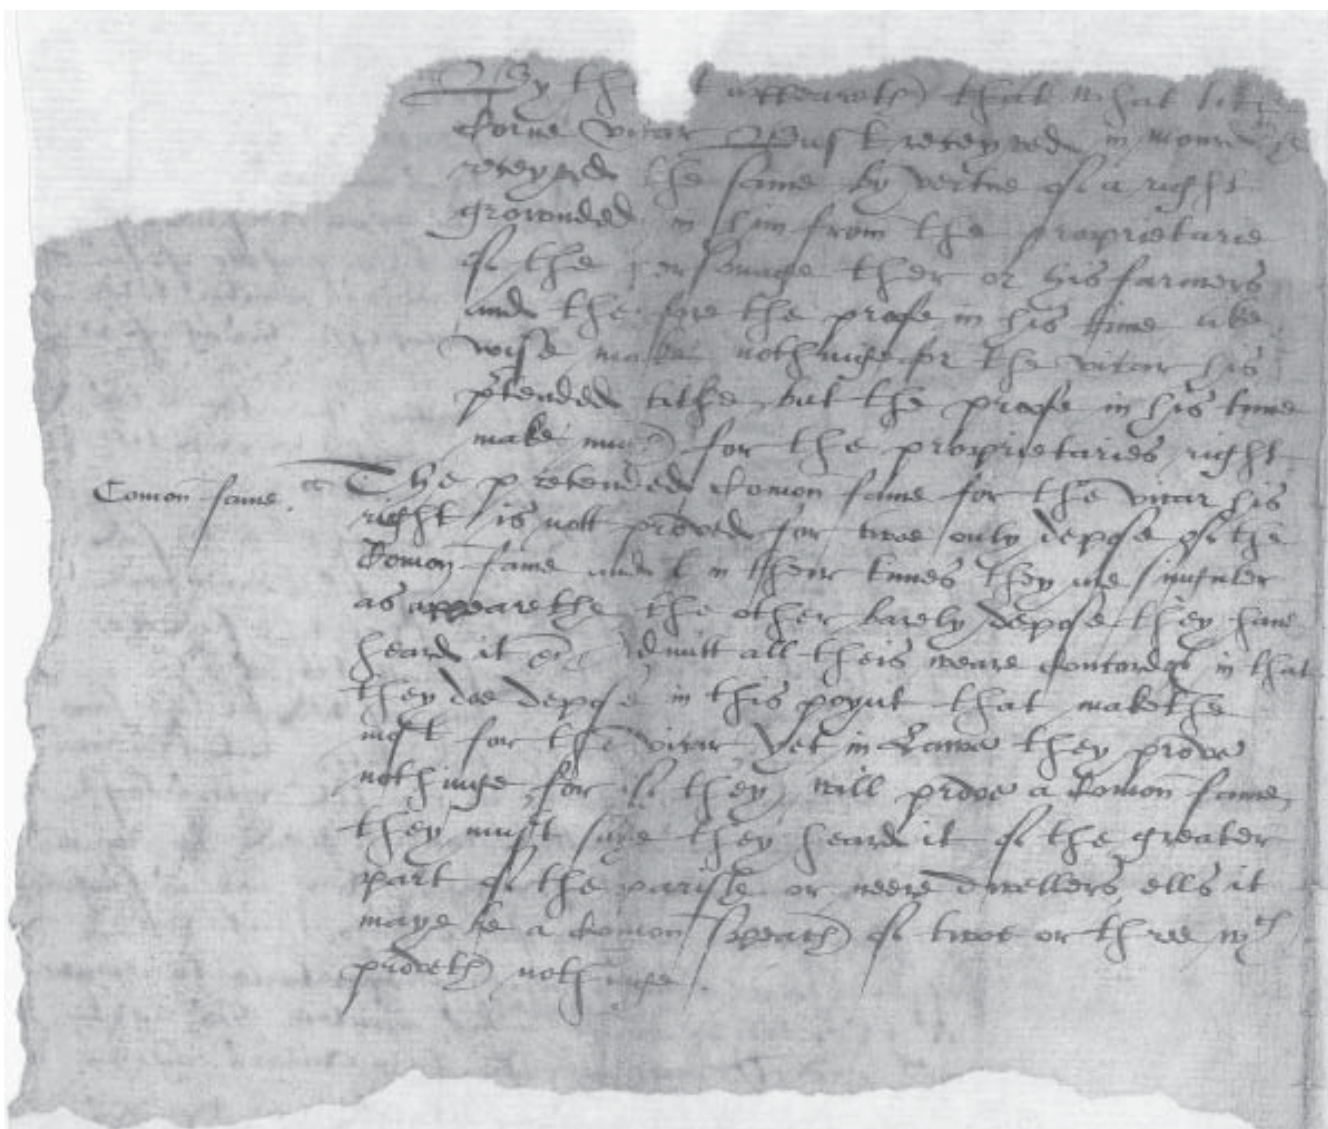 By th t appeareth that what tith
Corne vicar Bust receyved in
receyved the same by vertue of a right
grownded in him from the proprietarie
of the personage ther or his farmers
and therfore the profe in his time like
wise make nothinge for the vicar his
ptended tithe but the proofe in his time
make much for the proprietaries right
Comon fame. The pretended Comon fame for the vicar his
right is nott proved for twoe only depose of the
Comon fame and in their times they are singuler
as appearethe the other barely depose they have
heard it Admitt all theis weare in that
they doe depose in this poynt that makethe
most for the vicar yet in Lawe they prove
nothinge for if they will prove a Comon fame
they must saye they heard it of the greater
part of the parishe or neere dwellers, ells it
maye be a Comon speach of twoe or three wch
proveth nothinge.